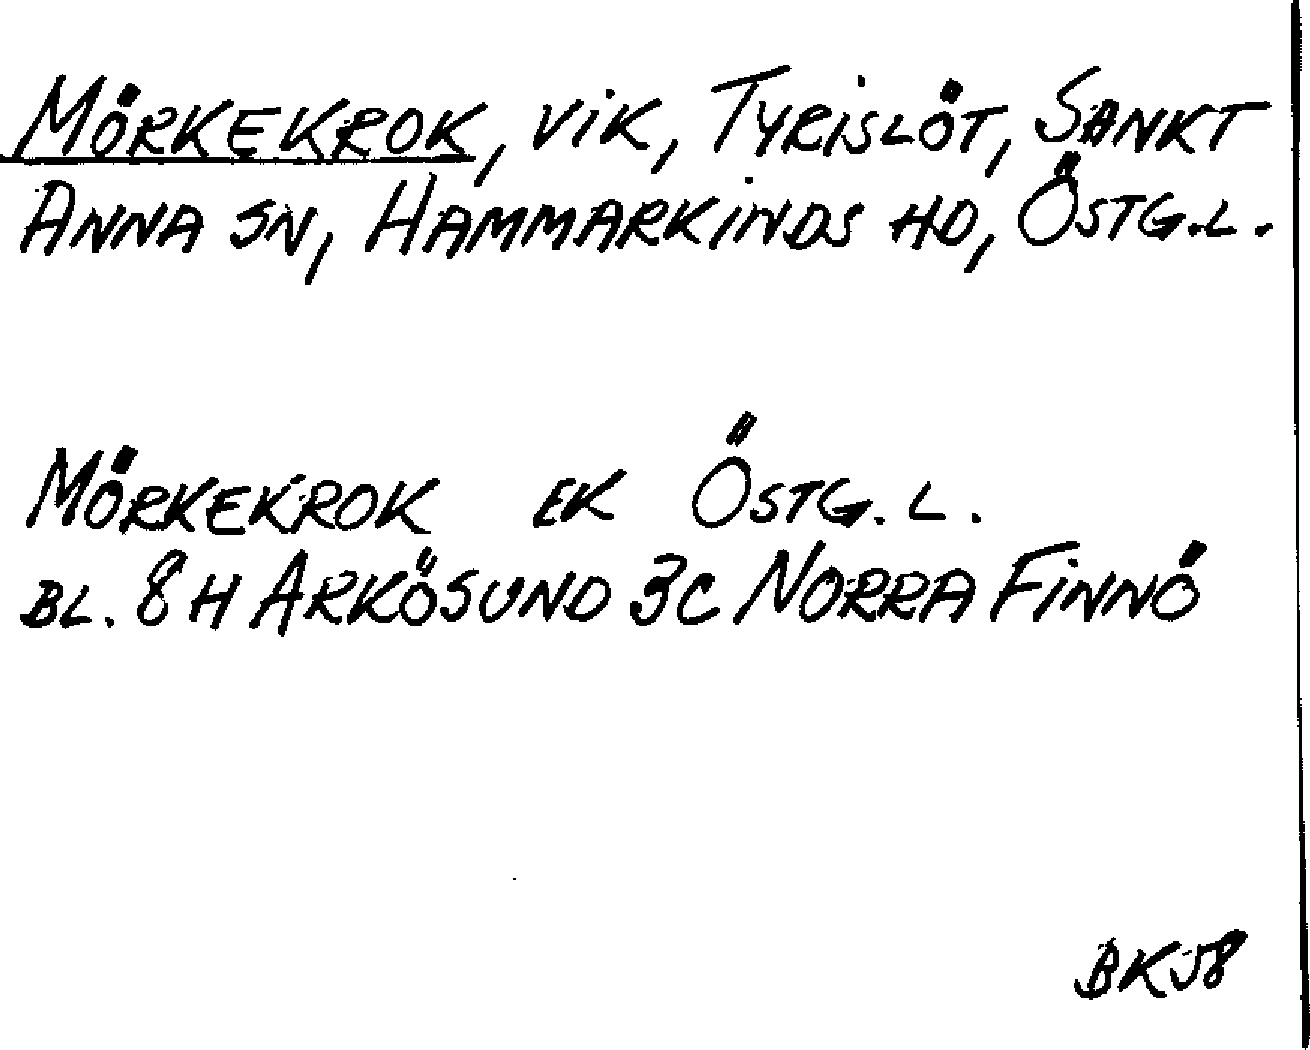 MÖRKEKROK, VIK, TYRISLÖT, SANKT
ANNA SN, HAMMARKINDS HD, ÖSTG.L.
MÖRKEKROK EK ÖSTG.L.
BL. 8H ARKÖSUND 3C NORRA FINNÖ
BK58